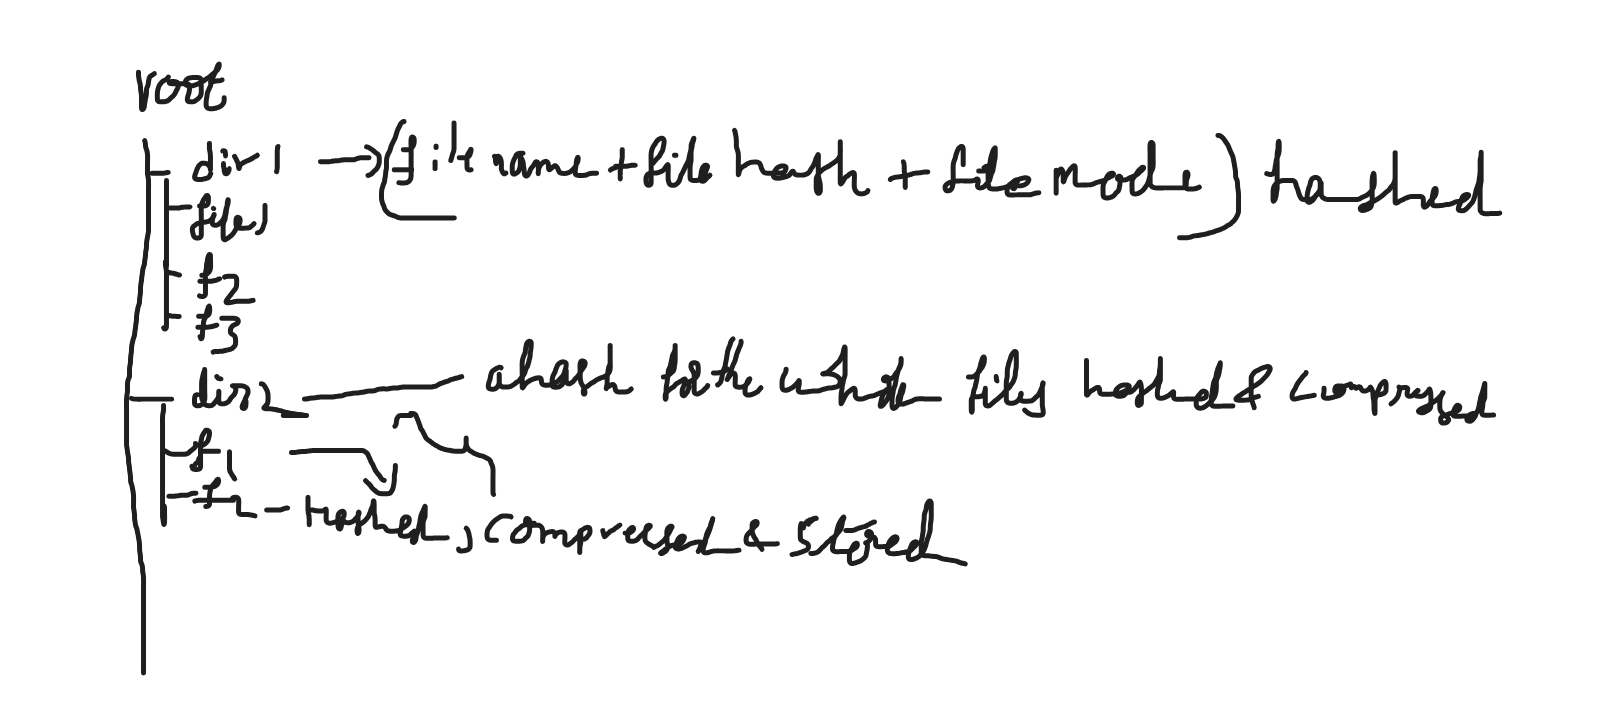 root
dir 1 → (file name + file hash + file mode) hashed
file 1
f2
f3
dir 2 — a hash for the whole file hashed & compressed
f1
f2 - hashed, compressed & stored